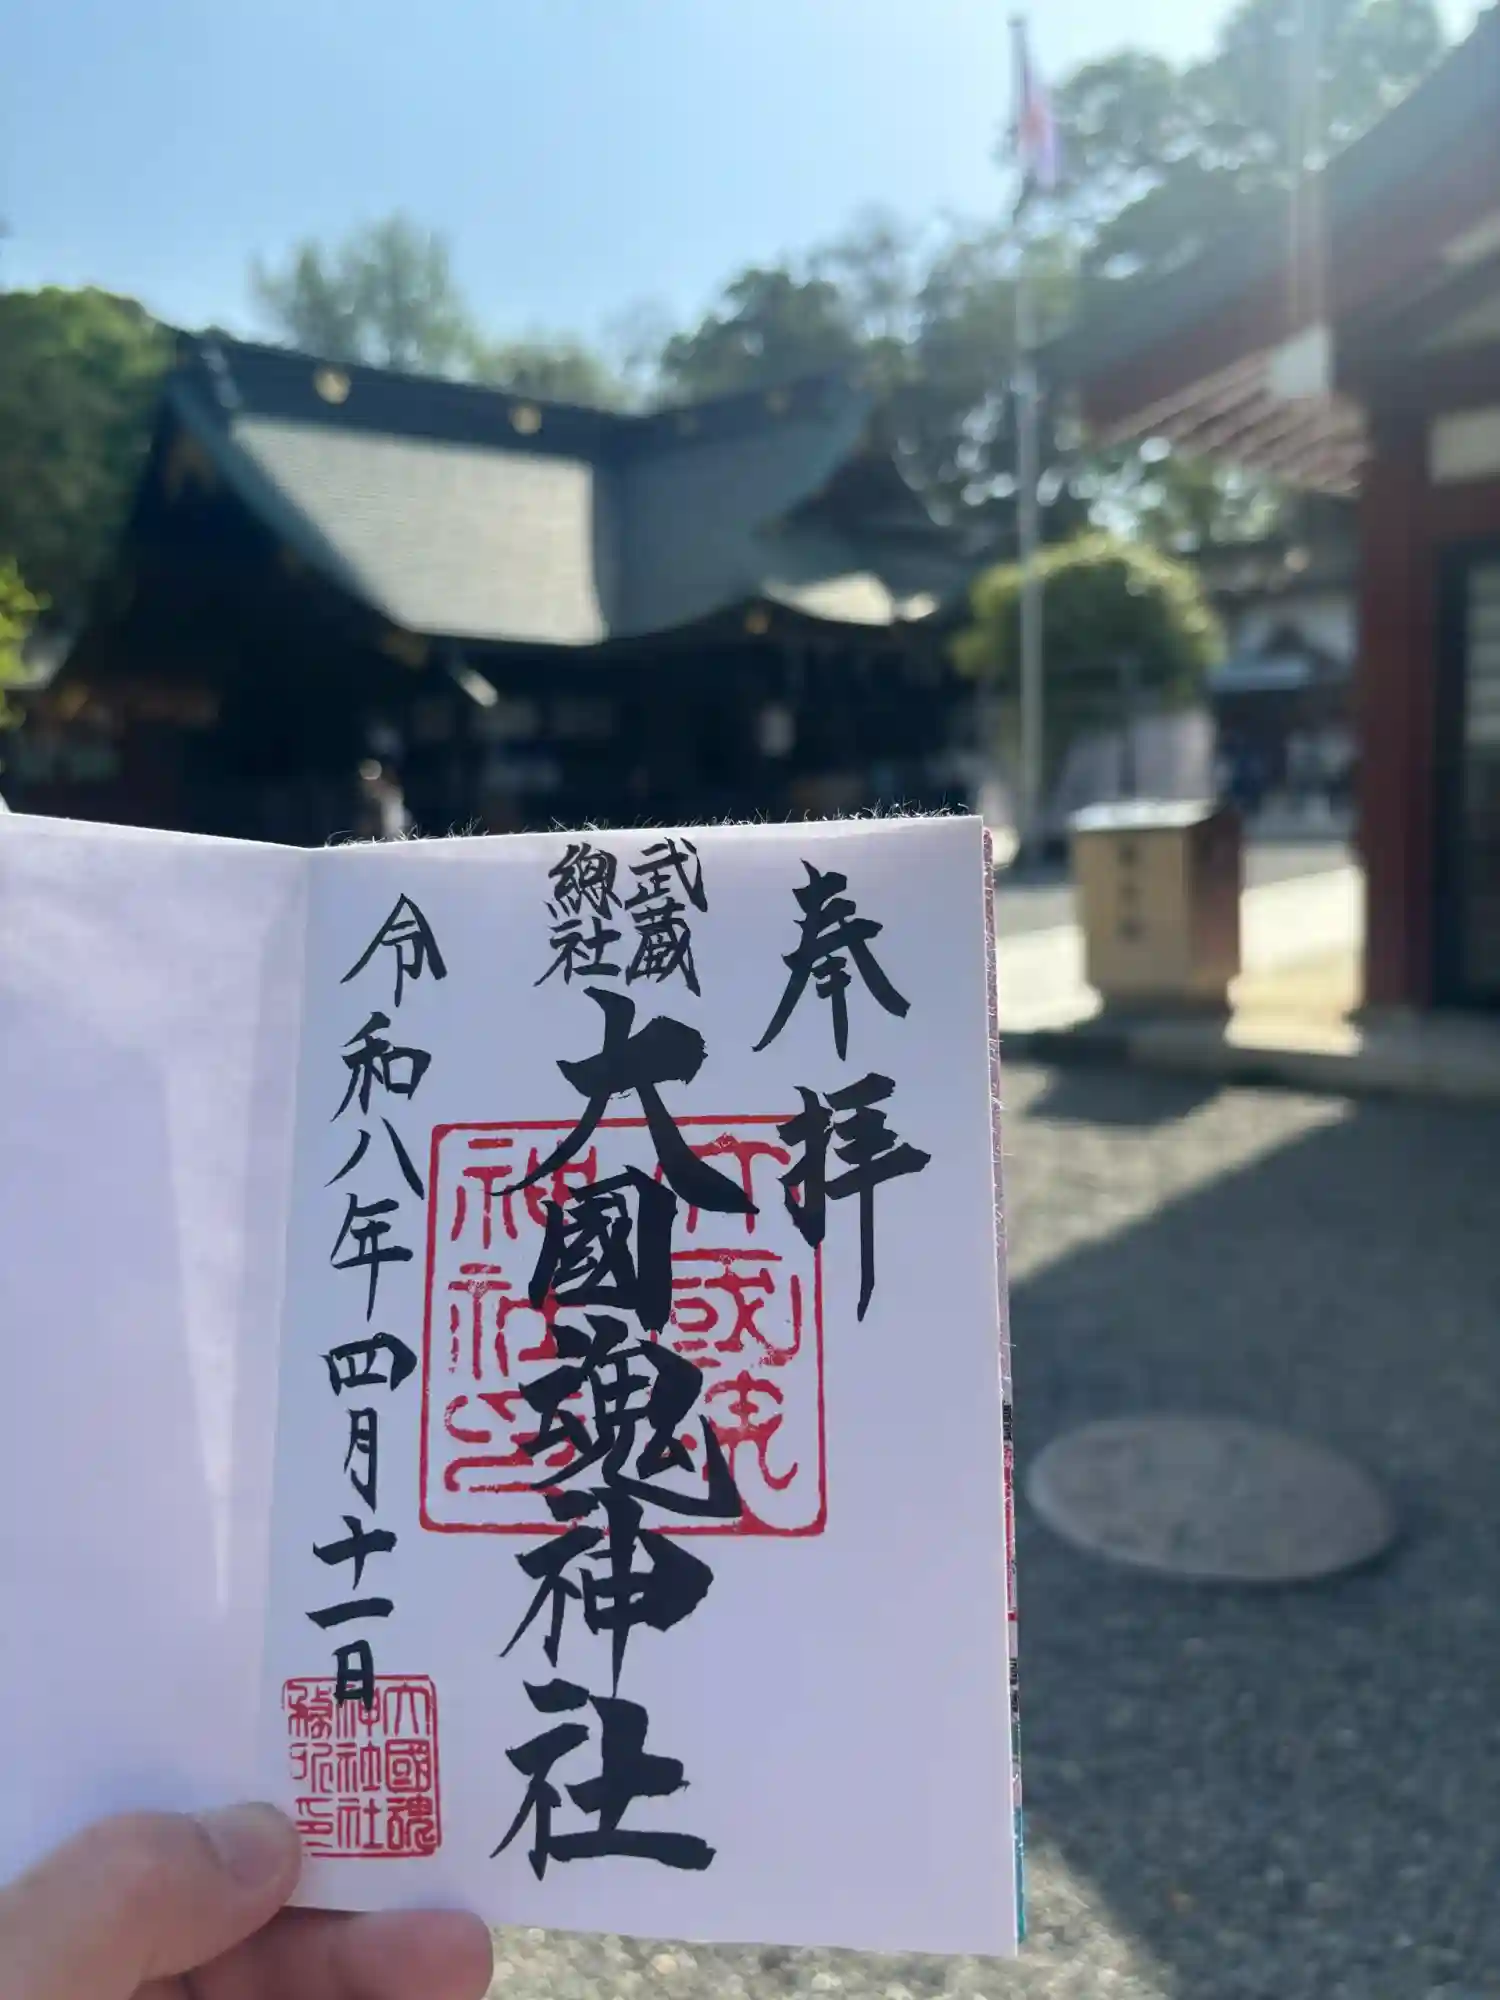 奉拝
武蔵
總社
大國魂神社
令和八年四月十一日
大國魂
神社印
大國魂
神社社
務所印